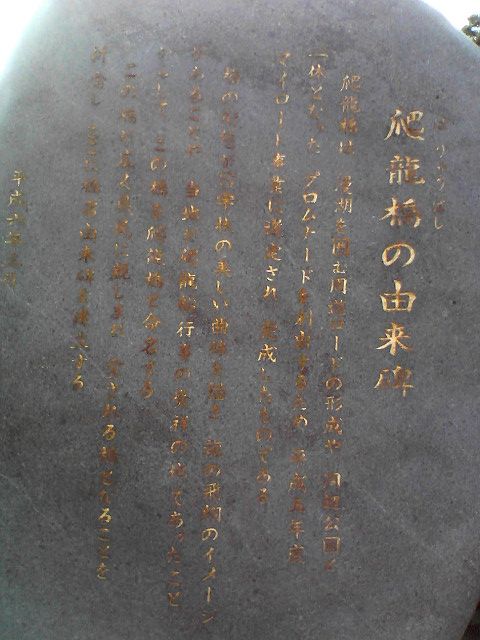 はりゅうばし
爬龍橋の由来碑
爬龍橋は 漫湖を囲む円環ロードの形成や 周辺公園と
一体となった プロムナードを創出するため 平成五年度
マイロード事業に選定され 完成したものである
橋の
字状の美しい曲線を描き 龍の飛翔のイメージ
であることや 当地が爬龍船行事の発祥の地であったこと
この橋を爬龍橋と命名する
この橋が広く県民に親しまれ 愛される橋となることを
祈念し ここに橋名由来碑を建立する
平成六年三月